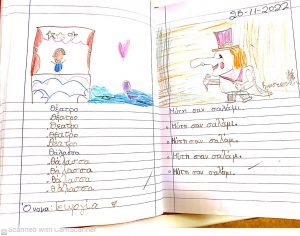 Θέατρο
Θέατρο
Θέατρο
Θέατρο
Θέατρο
Θάλασσα
θάλασσα
θάλασσα
θάλασσα
θάλασσα
Όνομα: Γεωργία
28-11-2022
Μύτη σαν σαλάμι.
Μύτη σαν σαλάμι.
Μύτη σαν σαλάμι.
Μύτη σαν σαλάμι.
Μύτη σαν σαλάμι.
Scanned with CamScanner